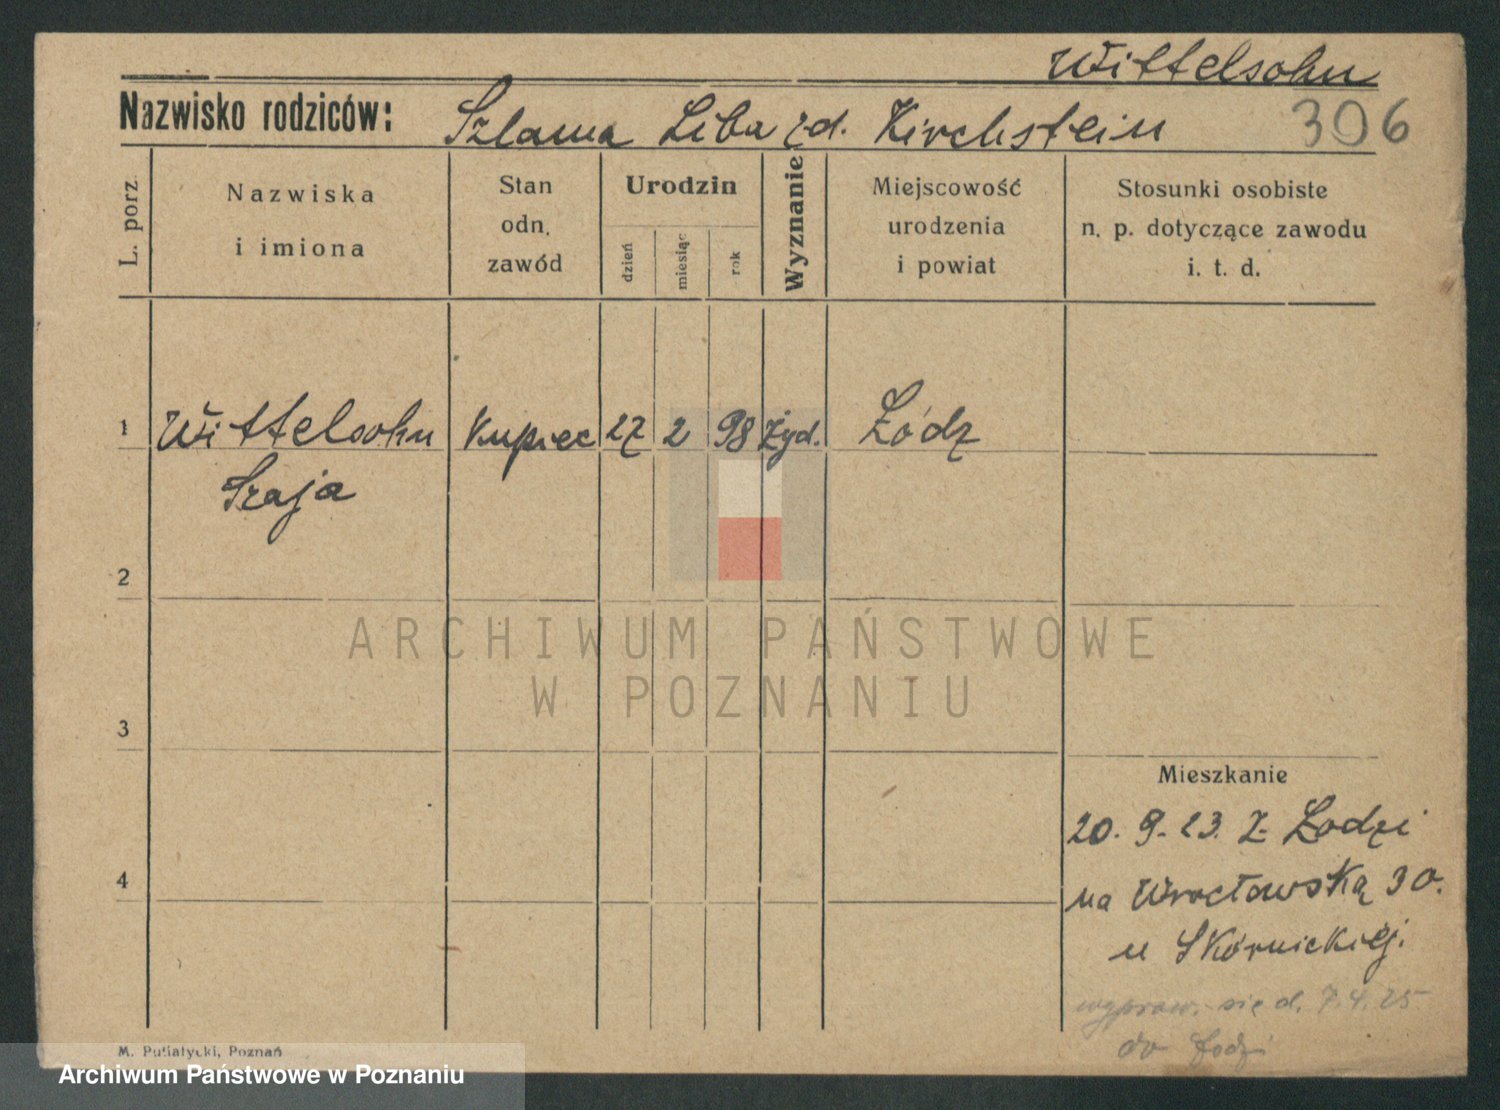 Wittelsohn
Nazwisko rodziców: Szlama Liba zd. Kirchstein 306
L. porz.
Nazwiska
i imiona
Stan
odn.
zawód
Urodzin
dzień
miesiąc
rok
Wyznanie
Miejscowość
urodzenia
i powiat
Stosunki osobiste
n. p. dotyczące zawodu
i. t. d.
1 Wittelsohn Kupiec 27 2 98 Żyd. Łódz
Szaja
2
ARCHIWUM PAŃSTWOWE
W POZNANIU
3
Mieszkanie
20. 9. 23. Z Łodzi
4
na Wrocławską 30.
u Skórnickiej.
wyprow. się d. 7.4.25
do Łodzi
M. Putiatycki, Poznań
Archiwum Państwowe w Poznaniu